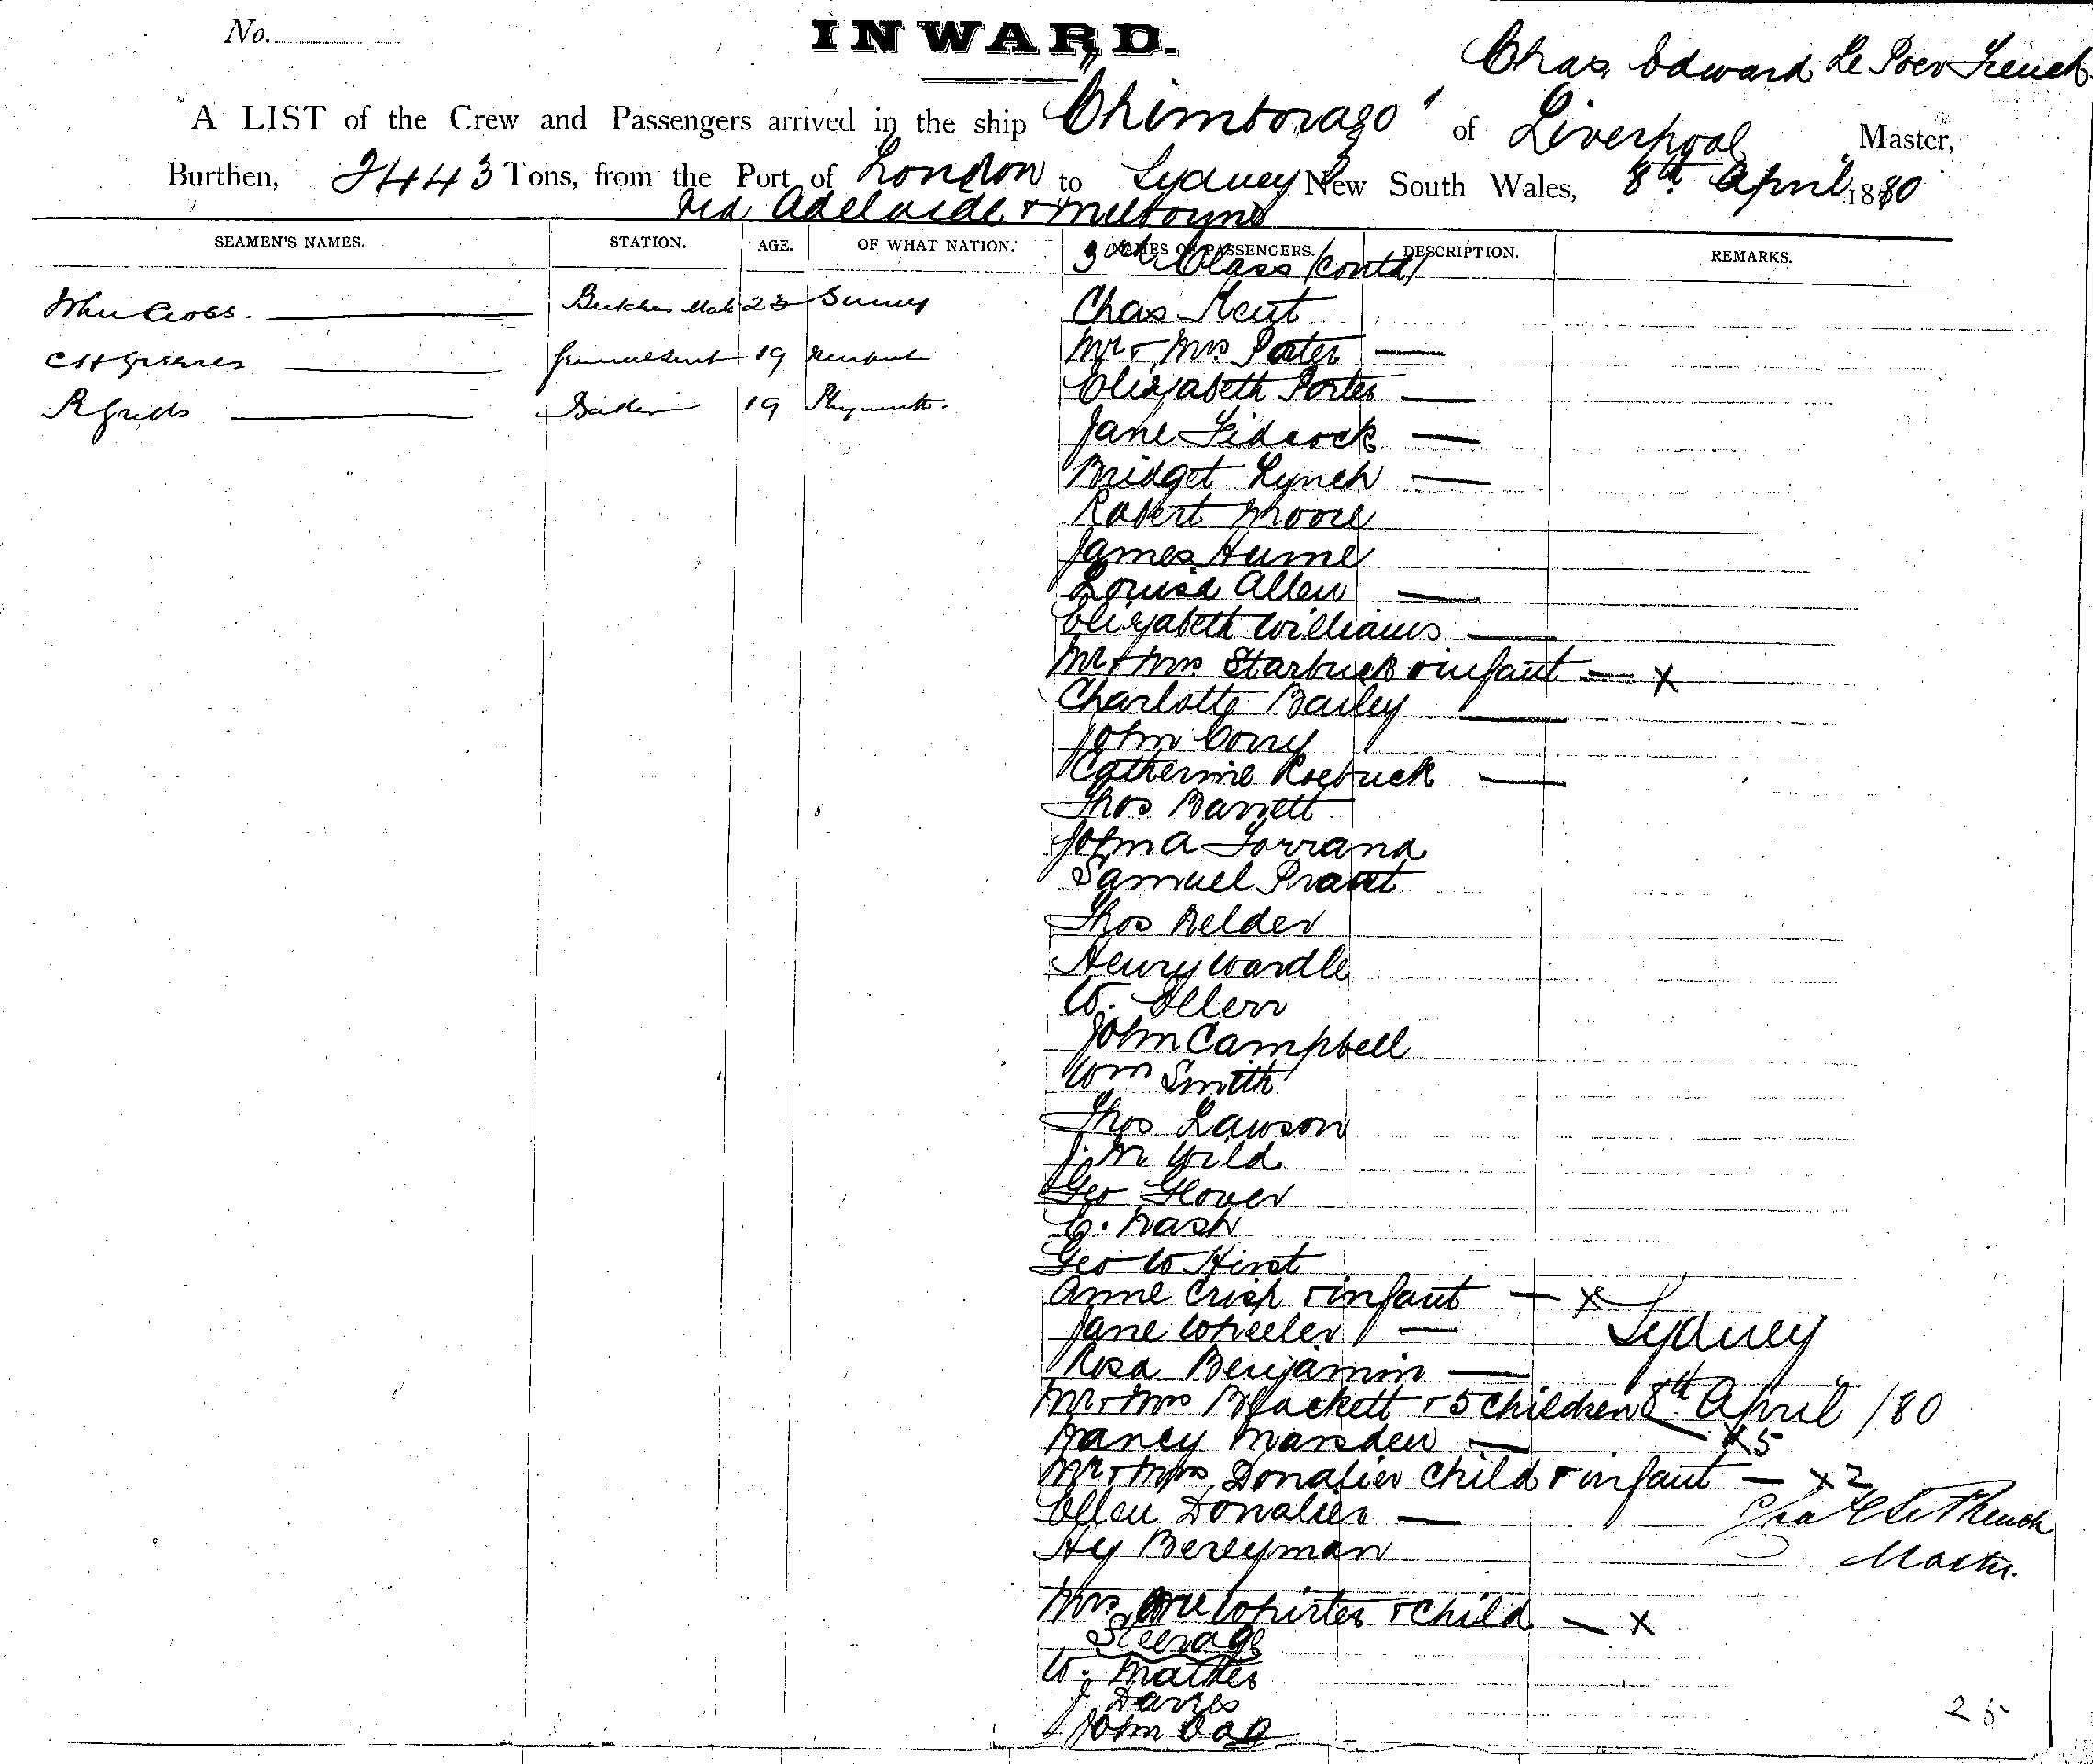 No.
INWARD.
Chas Edward Le Poer Trench
A LIST of the Crew and Passengers arrived in the ship "Chimborazo" of Liverpool Master,
Burthen, 2443 Tons, from the Port of London to Sydney New South Wales, 8th April 1880
via Adelaide & Melbourne
SEAMEN'S NAMES. STATION. AGE. OF WHAT NATION. NAMES OF PASSENGERS. DESCRIPTION. REMARKS.
3rd Class (contd)
John Cross Butchers Mate 23 Surrey Chas Kent
Mr & Mrs Porter
C H 19
Elizabeth Porter
R 19 Plymouth
Jane Fidcock
Bridget Lynch
Robert Moore
James Hume
Louisa Allen
Elizabeth Williams
Mr & Mrs Starbuck & infant x
Charlotte Bailey
John Corry
Catherine Roebuck
Thos Barrett
John A Torrand
Samuel
Thos Belder
Henry Wardle
W. Ellerr
John Campbell
Wm Smith
Thos Lawson
J. M Wild
Geo Glover
E. Nash
Geo W Hirst
Anne Crisp & infant x
Jane Wheeler Sydney
Rosa Benjamin
Mr & Mrs Blackett & 5 Children 8th April /80
Nancy Marsden x5
Mr & Mrs Donalier Child & infant x2
Ellen Donalier
Hy Bereyman
Master.
Mrs McWhirter & Child x
Steerage
W. Mather
J Davies
John Oag
25